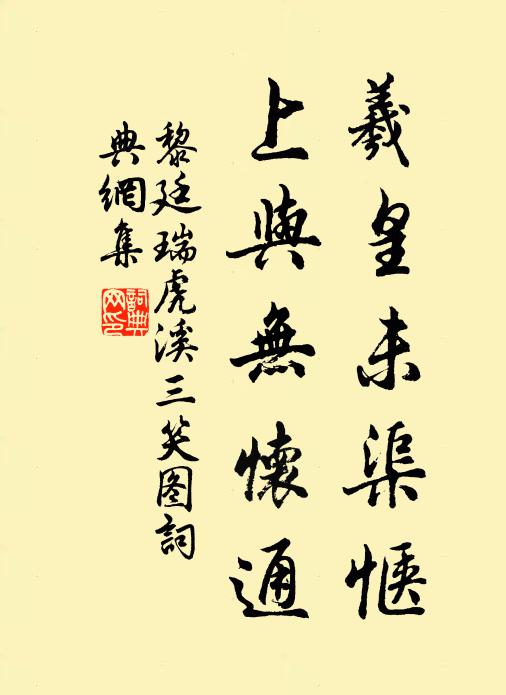 羲皇未渠惬
上與無懷通
黎廷瑞虎溪三笑图詞
典網集
詞典
网印